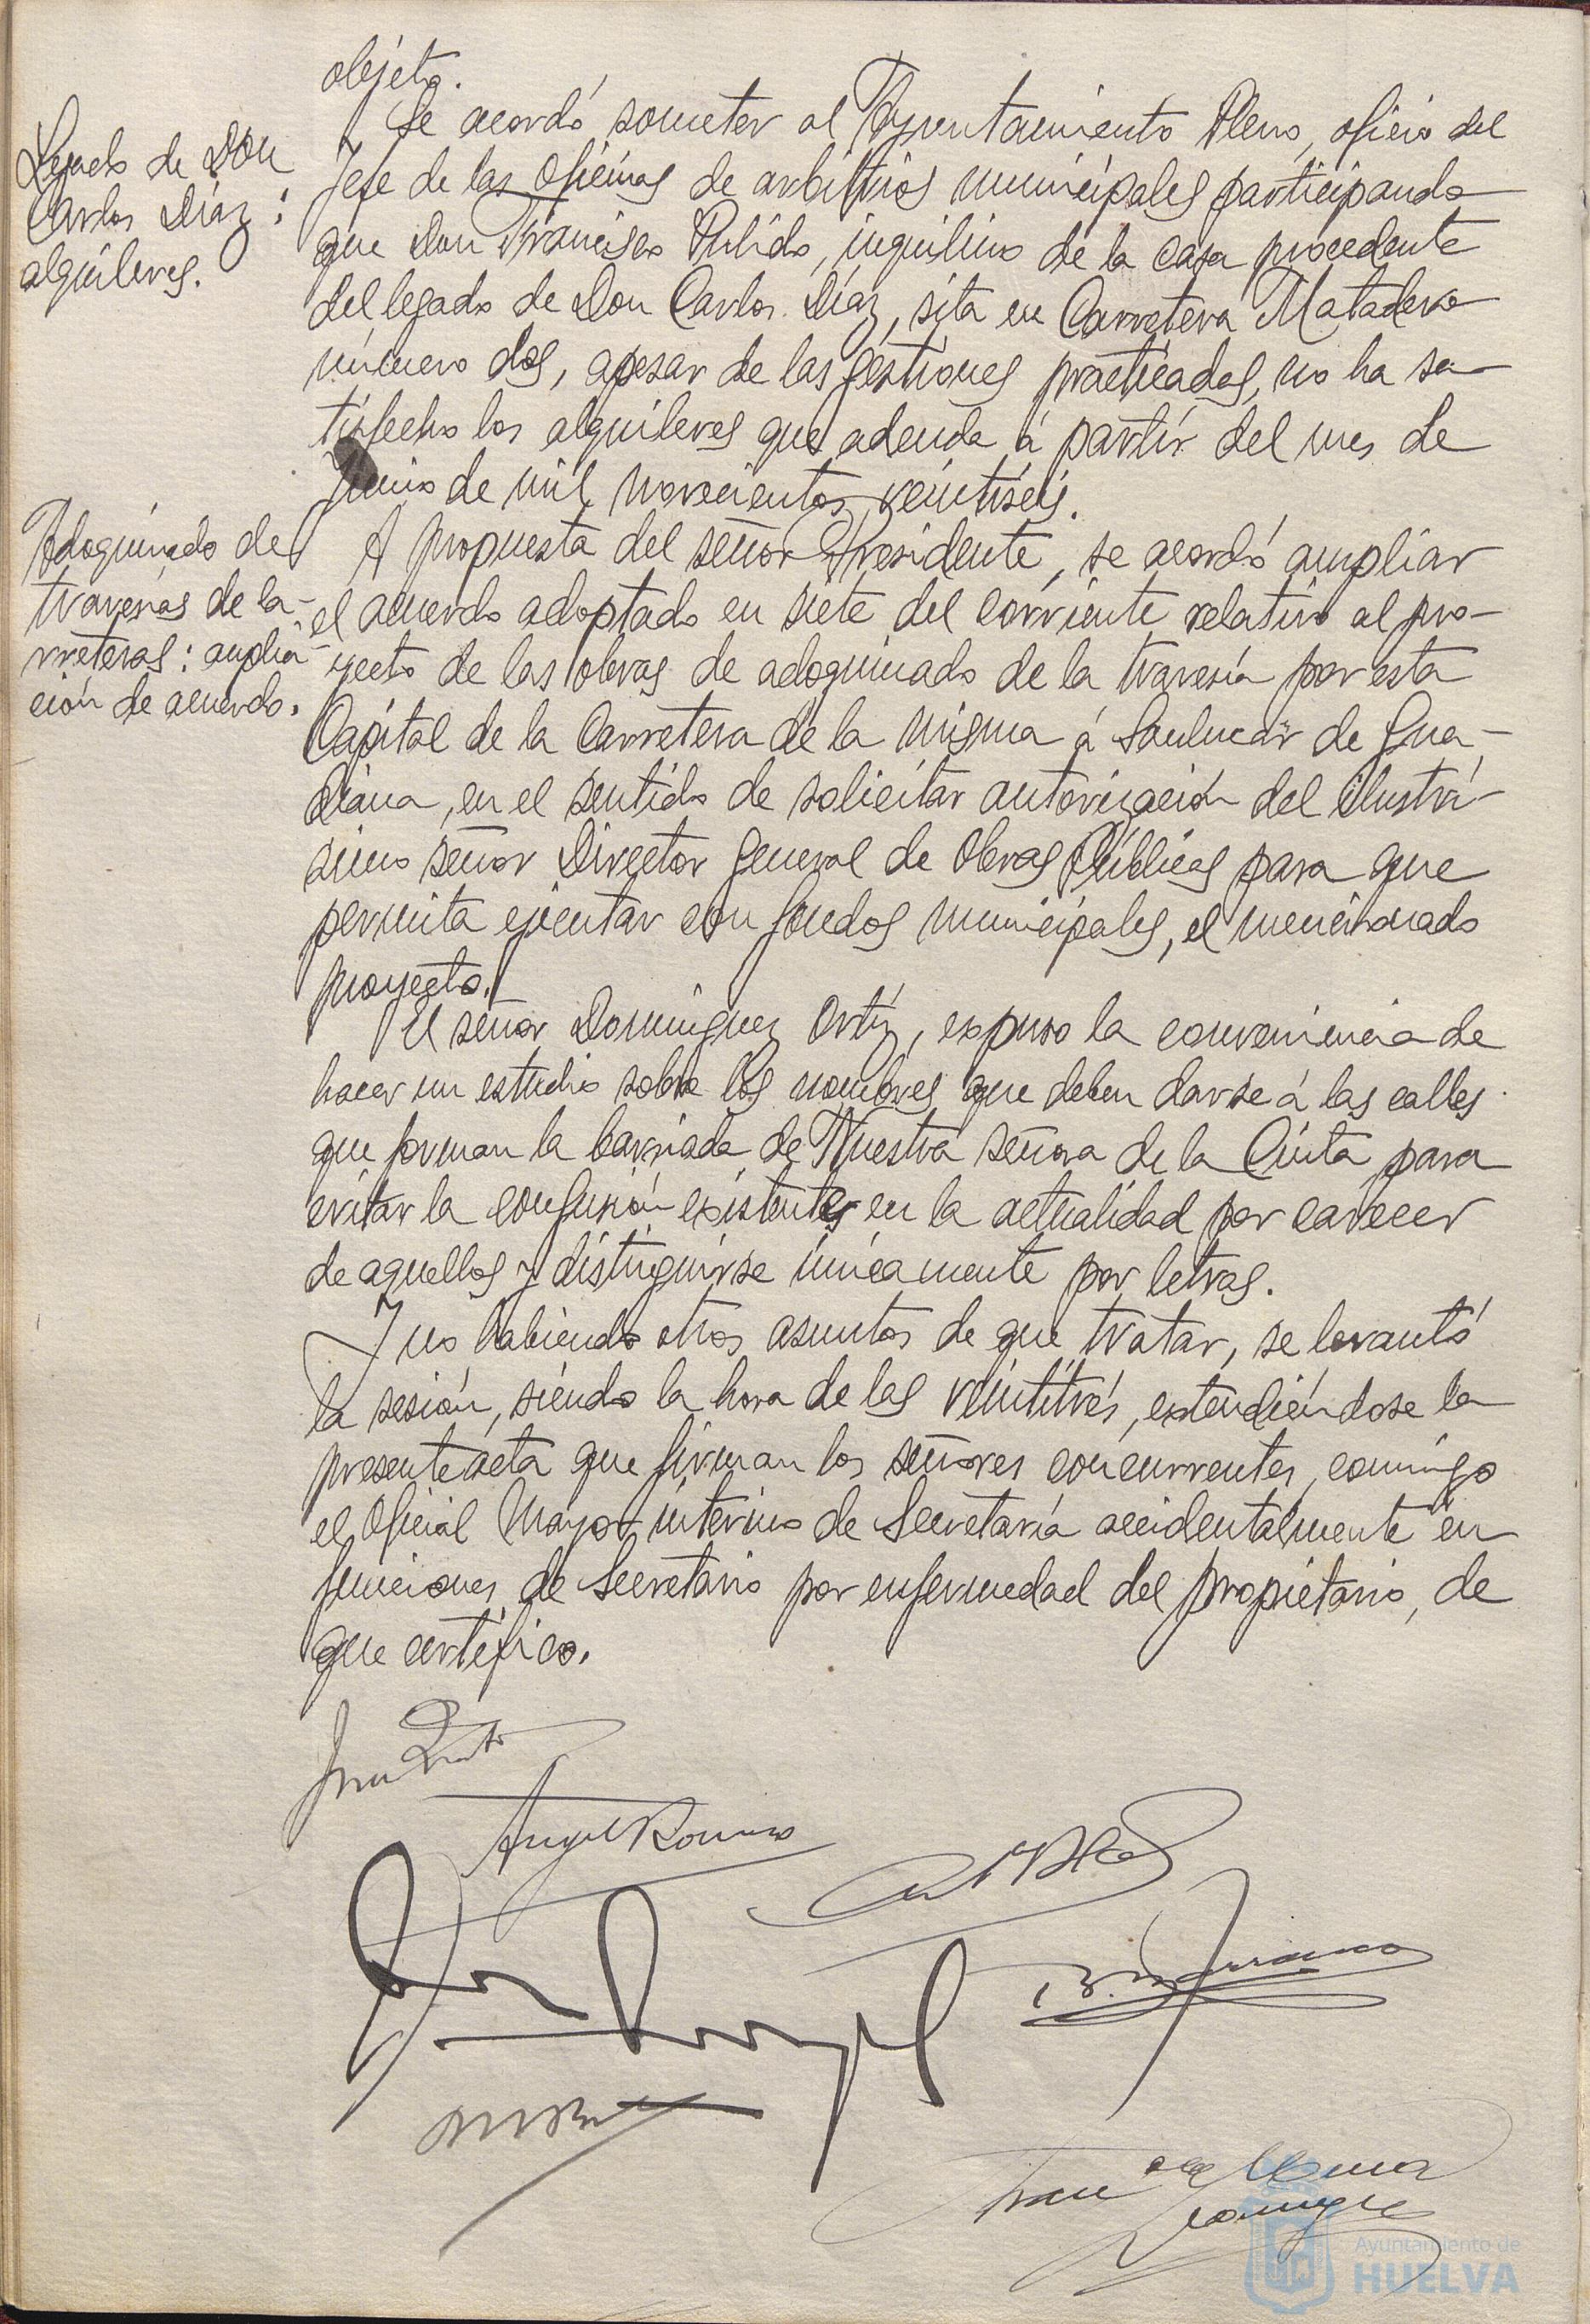 objeto.
Se acordó someter al Ayuntamiento Pleno, oficio del
Legado de Don
Carlos Díaz:
alquileres.
Jefe de las Oficinas de arbitrios municipales participando
que Don Francisco Pulido, inquilino de la casa procedente
del legado de Don Carlos Díaz, sita en Carretera Matadero
número dos, apesar de las gestiones practicadas, no ha sa-
tisfecho los alquileres que adeuda á partir del mes de
Junio de mil novecientos veintiséis.
Adoquinado de
travesías de ca-
rreteras: amplia-
ción de acuerdo.
A propuesta del señor Presidente, se acordó ampliar
el acuerdo adoptado en siete del corriente relativo al pro-
yecto de las obras de adoquinado de la travesía por esta
Capital de la Carretera de la misma á Sanlucar de Gua-
diana, en el sentido de solicitar autorización del ilustrí-
simo señor Director general de Obras Públicas para que
permita ejecutar con fondos municipales, el mencionado
proyecto.
El señor Domínguez Ortíz, expuso la conveniencia de
hacer un estudio sobre los nombres que deben darse á las calles
que forman la barriada de Nuestra señora de la Cinta para
evitar la confusión existente en la actualidad por carecer
de aquellos y distinguirse únicamente por letras.
Y no habiendo otros asuntos de que tratar, se levantó
la sesión, siendo la hora de las veintitrés, extendiéndose la
presente acta que firman los señores concurrentes, conmigo
el Oficial Mayor interino de Secretaría accidentalmente en
funciones de Secretario por enfermedad del propietario, de
que certifico.
Angel Romero
Ayuntamiento de
HUELVA